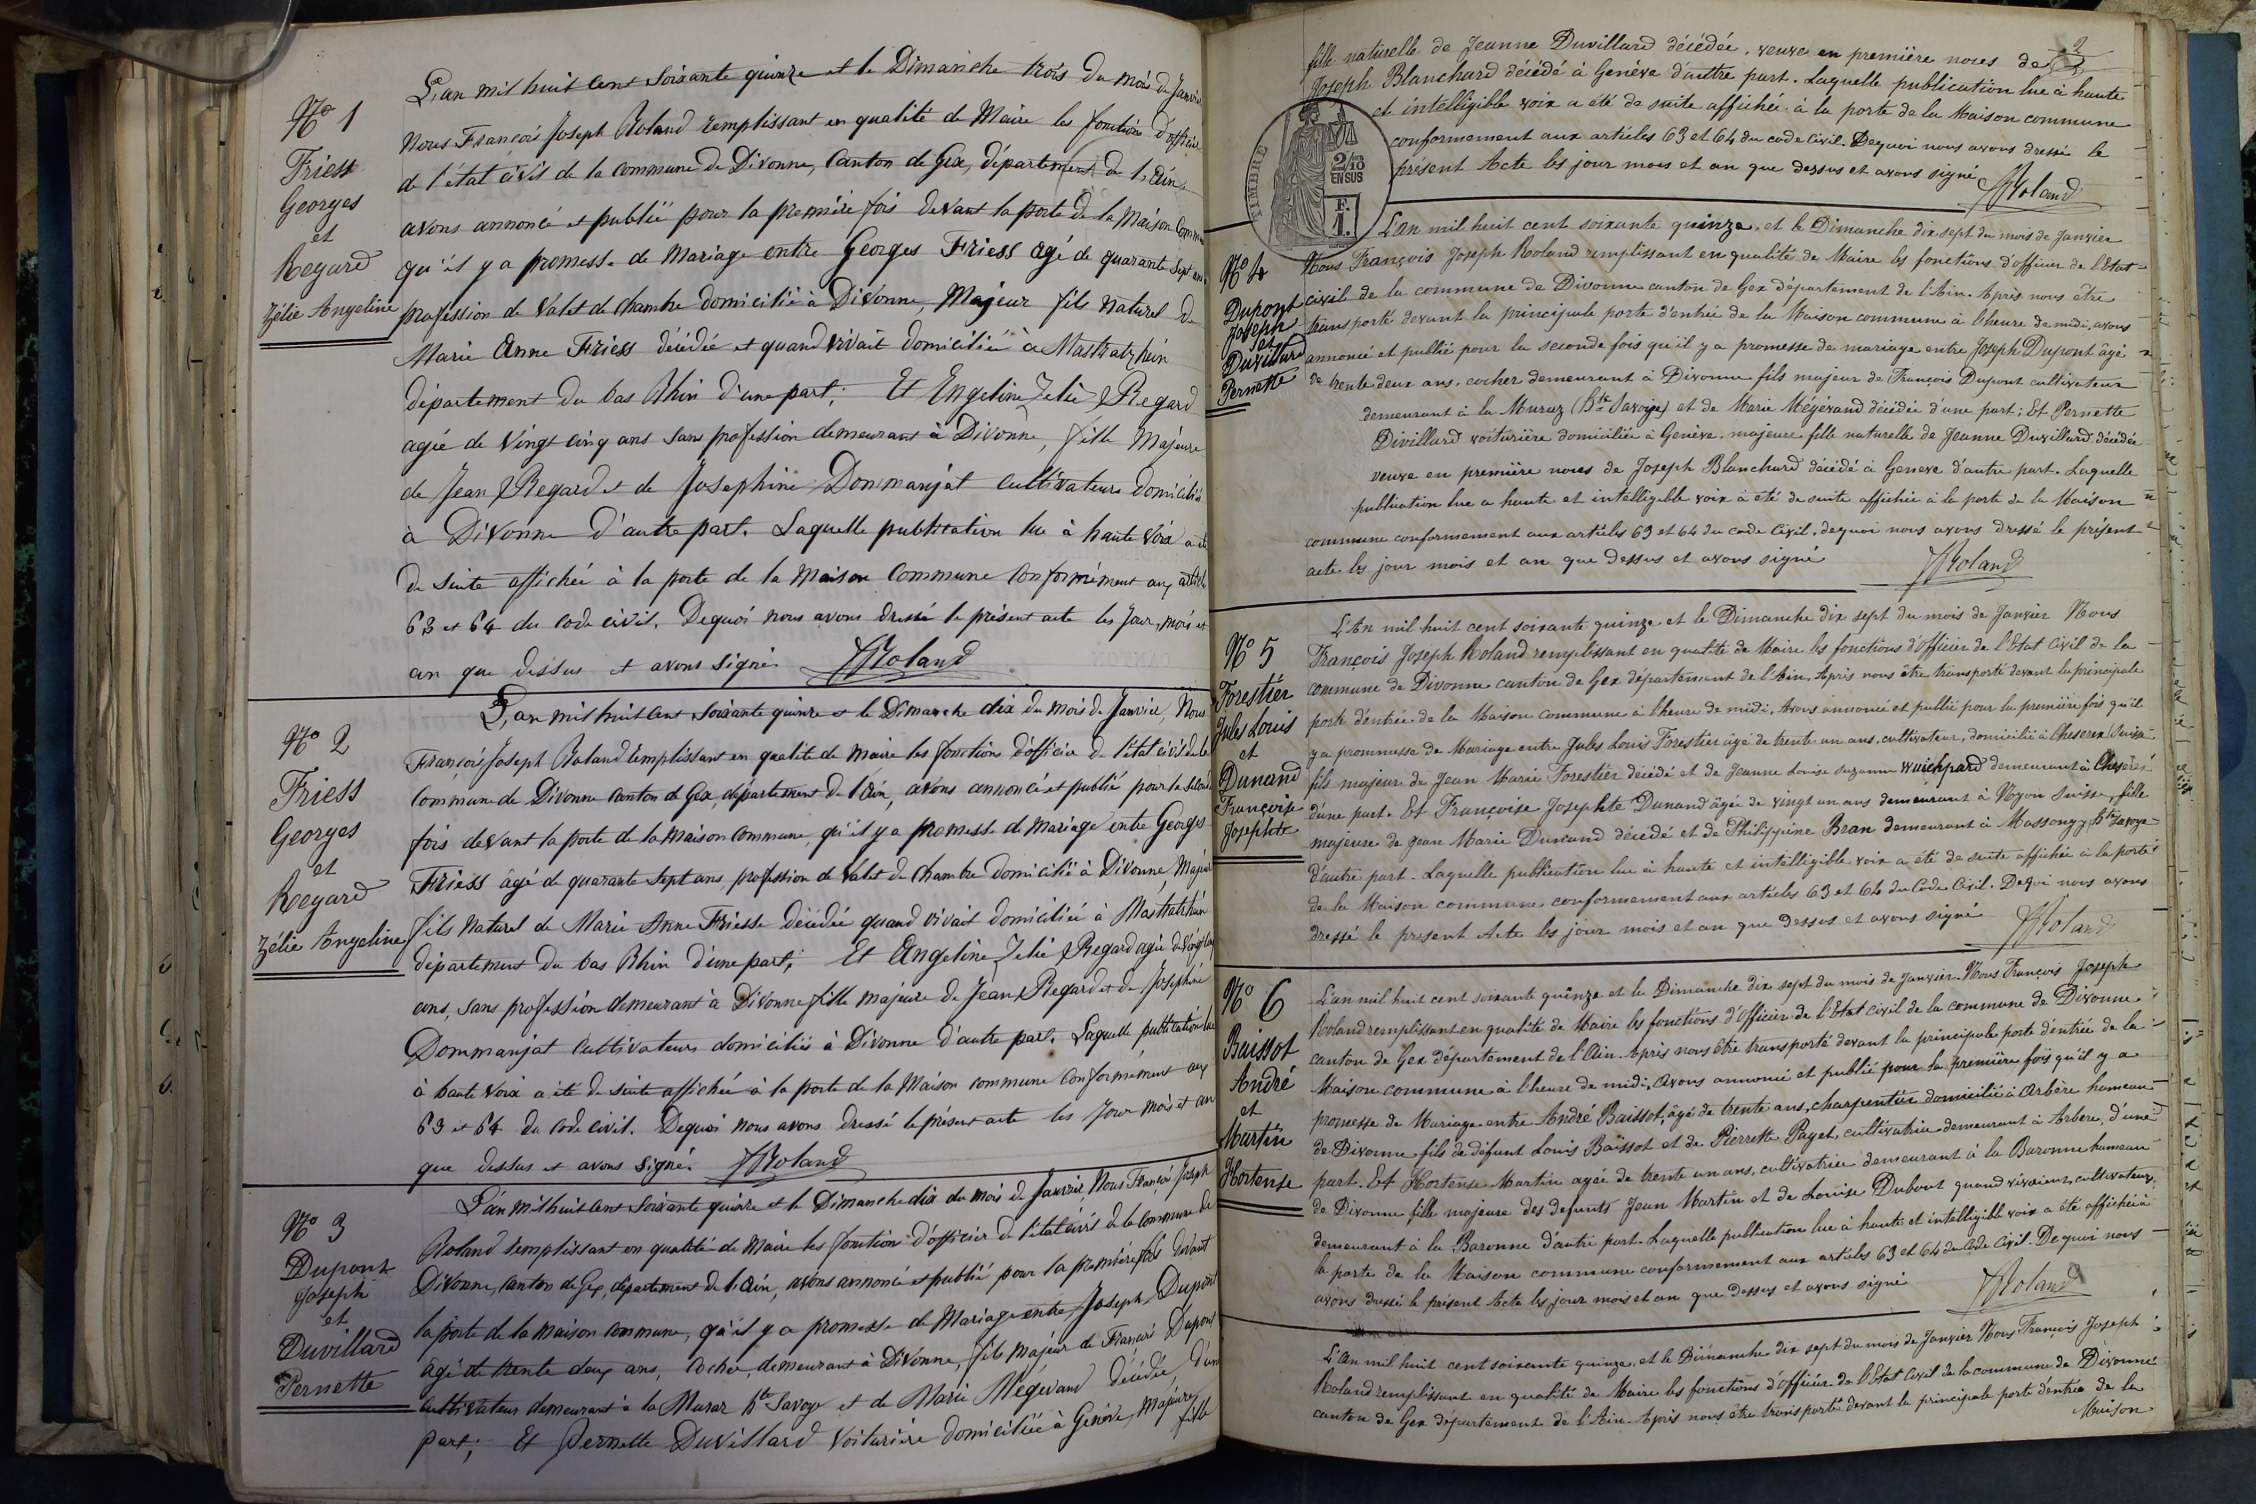 N° 1
Friess
Georges
et
Regard
Zélie Angeline
L'an mil huit cent soixante quinze et le Dimanche trois du mois de Janvier
Nous François Joseph Roland remplissant en qualité de Maire les fonctions d'officier
de l'état civil de la commune de Divonne, Canton de Gex, département de l'Ain
avons annoncé et publié pour la première fois devant la porte de la Maison Commune
qu'il y a promesse de Mariage entre Georges Friess agé de quarante sept ans
profession de Valet de chambre domicilié à Divonne, Majeur fils naturel de
Marie Anne Friess décédée et quand vivait domiciliée à Mastratzhein
département du bas Rhin d'une part; Et Engeline Zelie Regard
agée de vingt cinq ans sans profession demeurant à Divonne, fille Majeure
de Jean Regard et de Josephine Dommanjat cultivateurs domiciliés
à Divonne d'autre part. Laquelle publication lue à haute voix a été
de suite affichée à la porte de la Maison Commune conformément aux articles
63 et 64 du code civil. Dequoi nous avons dressé le présent acte les Jour, mois et
an que dessus et avons signé. JRoland
N° 2
Friess
Georges
et
Regard
Zélie Angeline
L'an mil huit cent soixante quinze et le Dimanche dix du mois de Janvier, Nous
François Joseph Roland remplissant en qualité de maire les fonctions d'officier de l'état civil de la
commune de Divonne canton de Gex département de l'Ain, avons annoncé et publié pour la seconde
fois devant la porte de la maison commune, qu'il y a promesse de mariage entre Georges
Friess âgé de quarante sept ans, profession de Valet de Chambre domicilié à Divonne, Majeur
fils naturel de Marie Anne Friesse décédée quand vivait domiciliée à Mastratzhein
département du bas Rhin d'une part; Et Angeline Zelie Regard agée de vingt cinq
ans, sans profession demeurant à Divonne fille majeure de Jean Regard et de Josephine
Dommanjat cultivateurs domiciliés à Divonne d'autre part. Laquelle publication lue
à haute voix a été de suite affichée à la porte de la Maison commune conformément aux
63 et 64 du code civil. Dequoi nous avons dressé le présent acte les Jour mois et an
que dessus et avons signé. JRoland
N° 3
Dupont
Joseph
et
Duvillard
Pernette
L'an mil huit cent soixante quinze et le Dimanche dix du mois de Janvier, Nous François Joseph
Roland remplissant en qualité de Maire les fonctions d'officier de l'état civil de la commune de
Divonne, canton de Gex, département de l'Ain, avons annoncé et publié pour la première fois devant
la porte de la maison commune, qu'il y a promesse de Mariage entre Joseph Dupont
âgé de trente deux ans, cocher, demeurant à Divonne, fils majeur de François Dupont
cultivateur demeurant à la Muraz hte Savoye et de Marie Mégevand décédée, d'une
part; Et Pernette Duvillard voiturière domiciliée à Genève, majeure
fille
2
fille naturelle de Jeanne Duvillard décédée, veuve en première noces de
Joseph Blanchard décédé à Genève d'autre part. Laquelle publication lue à haute
et intelligible voix a été de suite affichée à la porte de la Maison commune
conformement aux articles 63 et 64 du code Civil. Dequoi nous avons dressé le
présent Acte les jour mois et an que dessus et avons signé JRoland
TIMBRE
2/10
EN SUS
F.
1.
N° 4
Dupont
Joseph
et
Duvillard
Pernette
L'an mil huit cent soixante quinze, et le Dimanche dix sept du mois de Janvier
Nous François Joseph Rooland remplissant en qualité de Maire les fonctions d'officier de l'Etat
civil de la commune de Divonne canton de Gex département de l'Ain. Après nous être
transporté devant la principale porte d'entrée de la Maison commune à l'heure de midi, avons
annoncé et publié pour la seconde fois qu'il y a promesse de mariage entre Joseph Dupont âgé
de trente deux ans, cocher demeurant à Divonne fils majeur de François Dupont cultivateur
demeurant à la Muraz (Hte Savoije) et de Marie Mégévand décédée d'une part; Et Pernette
Divillard voiturière domiciliée à Genève, majeure fille naturelle de Jeanne Duvillard décédée
veuve en première noces de Joseph Blanchard décédé à Geneve d'autre part. Laquelle
publication lue a haute et intelligible voix à été de suite affichée à la porte de la Maison
commune conformement aux articles 63 et 64 du code Civil, dequoi nous avons dressé le présent
acte les jour mois et an que dessus et avons signé JRoland
N° 5
Forestier
Jules Louis
et
Dunand
Françoise
Josephte
L'An mil huit cent soixante quinze et le Dimanche dix sept du mois de Janvier Nous
François Joseph Roland remplissant en qualité de Maire les fonctions d'Officier de l'Etat Civil de la
commune de Divonne canton de Gex département de l'Ain, Après nous être transporté devant la principale
porte d'entrée de la Maison commune à l'heure de midi, Avons annoncé et publié pour la première fois qu'il
y a prommesse de Mariage entre Jules Louis Forestier âgé de trente un ans, cultivateur, domicilié à Cheserex Suisse
fils majeur de Jean Marie Forestier décédé et de Jeanne Louise Suzanne Wuichpard demeurant à Cheserex
d'une part. Et Françoise Josephte Dunand âgée de vingt un ans demeurant à Nyon Suisse, fille
majeure de Jean Marie Dunand décédé et de Philippine Bran demeurant à Massongy Hte Savoye
d'autre part. Laquelle publication lue à haute et intelligible voix a été de suite affichée à la porte
de la Maison commune conformement aux articles 63 et 64 du Code Civil. Dequoi nous avons
dressé le present Acte les jour mois et an que dessus et avons signé JRoland
N° 6
Baissot
André
et
Martin
Hortense
L'an mil huit cent soixante quinze et le Dimanche dix sept du mois de Janvier. Nous François Joseph
Rooland remplissant en qualité de Maire les fonctions d'Officier de l'Etat Civil de la commune de Divonne
canton de Gex département de l'Ain. Après nous être transporté devant la principale porte d'entrée de la
Maison commune à l'heure de midi, Avons annoncé et publié pour la première fois qu'il y a
promesse de Mariage entre André Baissot, âgé de trente ans, charpentier domicilié à Arbère hameau
de Divonne fils de défunt Louis Baissot et de Pierrette Payet, cultivatrice demeurant à Arbere, d'une
part. Et Hortense Martin agée de trente un ans, cultivatrice demeurant à la Baronne hameau
de Divonne fille majeure des defunts Jean Martin et de Louise Dubout quand vivaient cultivateurs
demeurant à la Baronne d'autre part. Laquelle publication lue à haute et intelligible voix a été affichée à
la porte de la Maison commune conformement aux articles 63 et 64 du Code Civil. De quoi nous
avons dressé le présent Acte les jour mois et an que dessus et avons signé JRoland
L'An mil huit cent soixante quinze, et le Dimanche dix sept du mois de Janvier Nous François Joseph
Roland remplissant en qualité de Maire les fonctions d'officier de l'Etat Civil de la commune de Divonne
canton de Gex département de l'Ain. Après nous être transporté devant la principale porte d'entrée de la
Maison